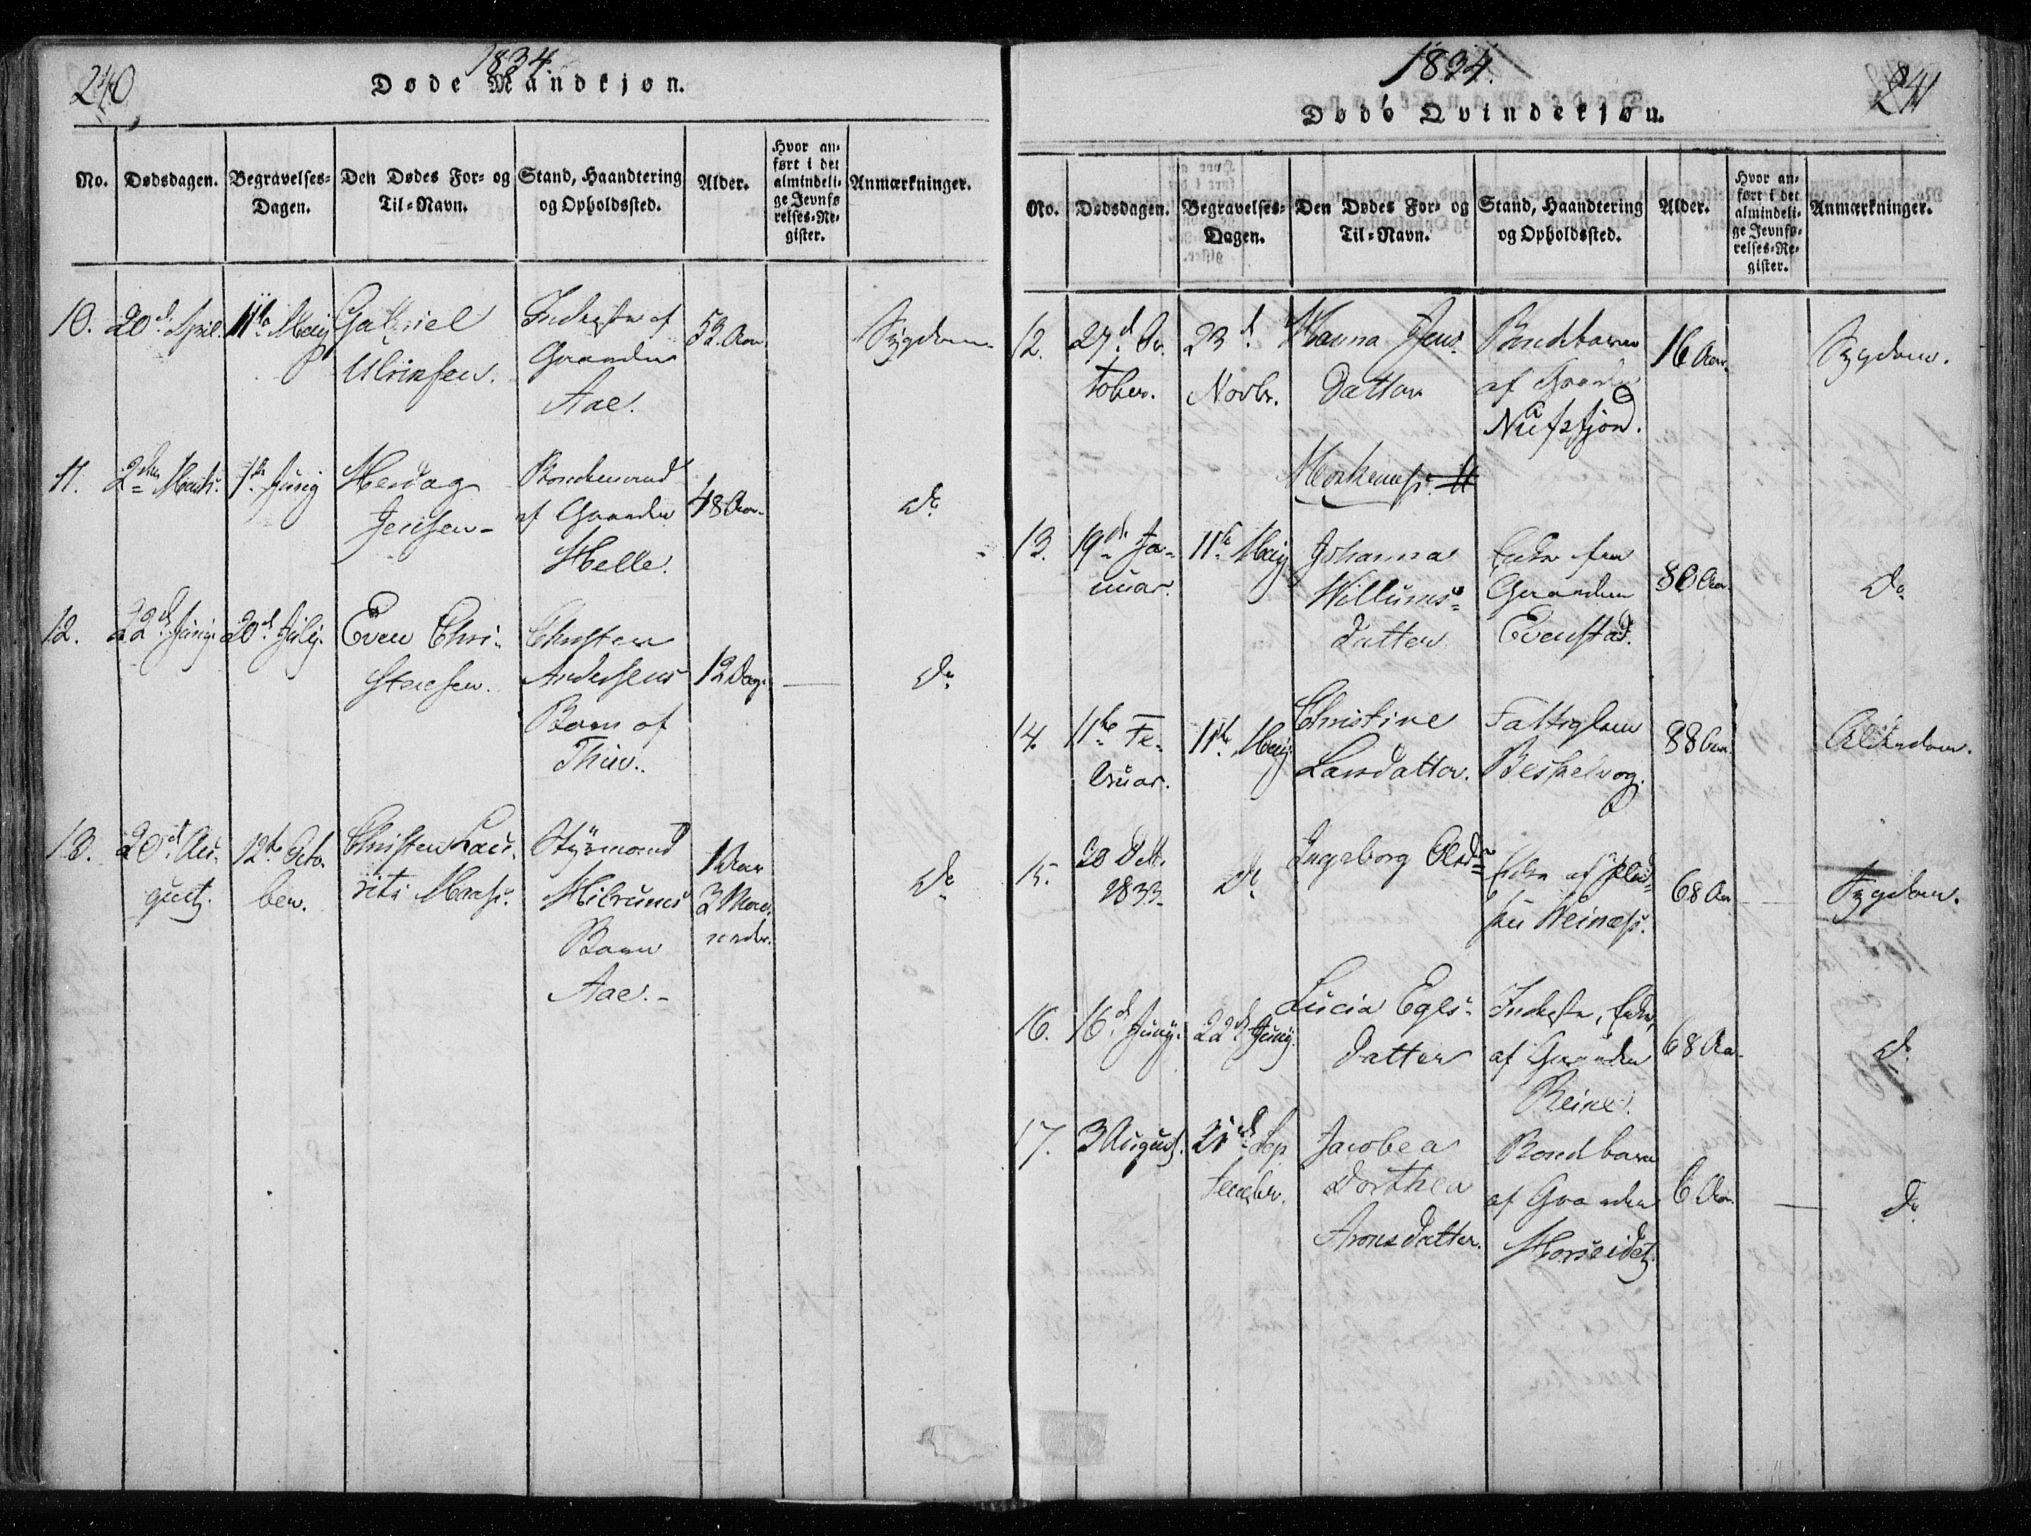 240
1834.
Døde Mandkjøn.
No.
Dødsdagen.
Begravelses-
Dagen.
Den Dødes For- og
Til-Navn.
Stand, Haandtering
og Opholdssted.
Alder.
Hvor an-
ført i det
almindeli-
ge Jevnfø
relses-Re-
gister.
Anmærkninger.
10.
20d April
11te Maij
Gabriel
Ulriksen.
Inderste af
Gaarden
Aae.
53 Aar
Sygdom.
11.
2den Marts.
1te Junij
Jensen
Bondemand
af Gaarden
Helle.
48 Aar
Do
12.
22d Junij
20d Julij.
Even Chri-
stensen.
Christen
Andersens
Barn af
12 Dag.
Do
13.
20d Au-
gust.
12te Octo-
ber.
Christen Lau-
rits
Styrmand
Barn
Aae.
1 Aar
3 Maa-
neder.
Do
1834.
241
Døde Qvindekjøn.
No.
Dødsdagen.
Begravelses-
Dagen.
Den Dødes For- og
Til-Navn.
Stand, Haandtering
og Opholdssted.
Alder.
Hvor an-
ført i det
almindeli-
ge Jevnfø-
relses-Re-
gister.
Anmærkninger.
12.
27d Oc-
tober.
23d
Novbr.
Hanna Jens
Datter
Bondbarn
af Gaarden
Nufsfjord.
16 Aar.
Sygdom.
13.
19de Ja-
nuar.
11te Maij
Johanna
Willums-
Datter
Enke fra
Gaarden
Evenstad.
80 Aar
Do
14.
11te Fe-
bruar.
11te Maij
Christine
Larsdatter.
Fattiglem
88 Aar.
Alderdom.
15.
20 Dcbr.
1833
Do
Ingeborg Olsdr
Enke af
Reinæs.
68 Aar
Sygdom.
16.
16d Junij.
22d Junij.
Lucia
Datter
Inderste, Enke,
af Gaarden
Reine.
68 Aar
Do
17.
3 August.
21d Sep
tember.
Jacobea
Dorthea
Arons Datter.
Bondbarn
af Gaarden
Horseidet.
6 Aar
Do